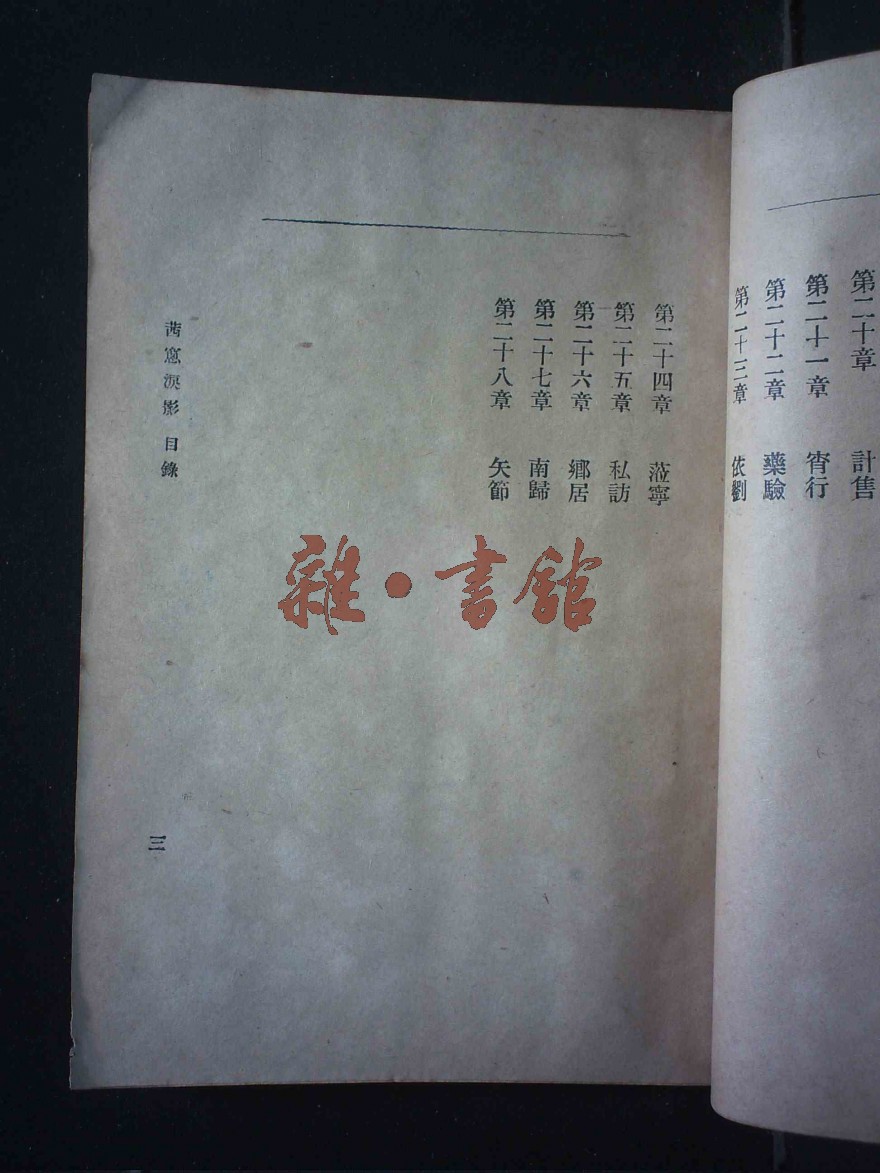 第二十章 計售
第二十一章 宵行
第二十二章 藥驗
第二十三章 依劉
第二十四章 蒞寧
第二十五章 私訪
第二十六章 鄉居
第二十七章 南歸
第二十八章 矢節
茜窻淚影 目錄
三
雜·書館